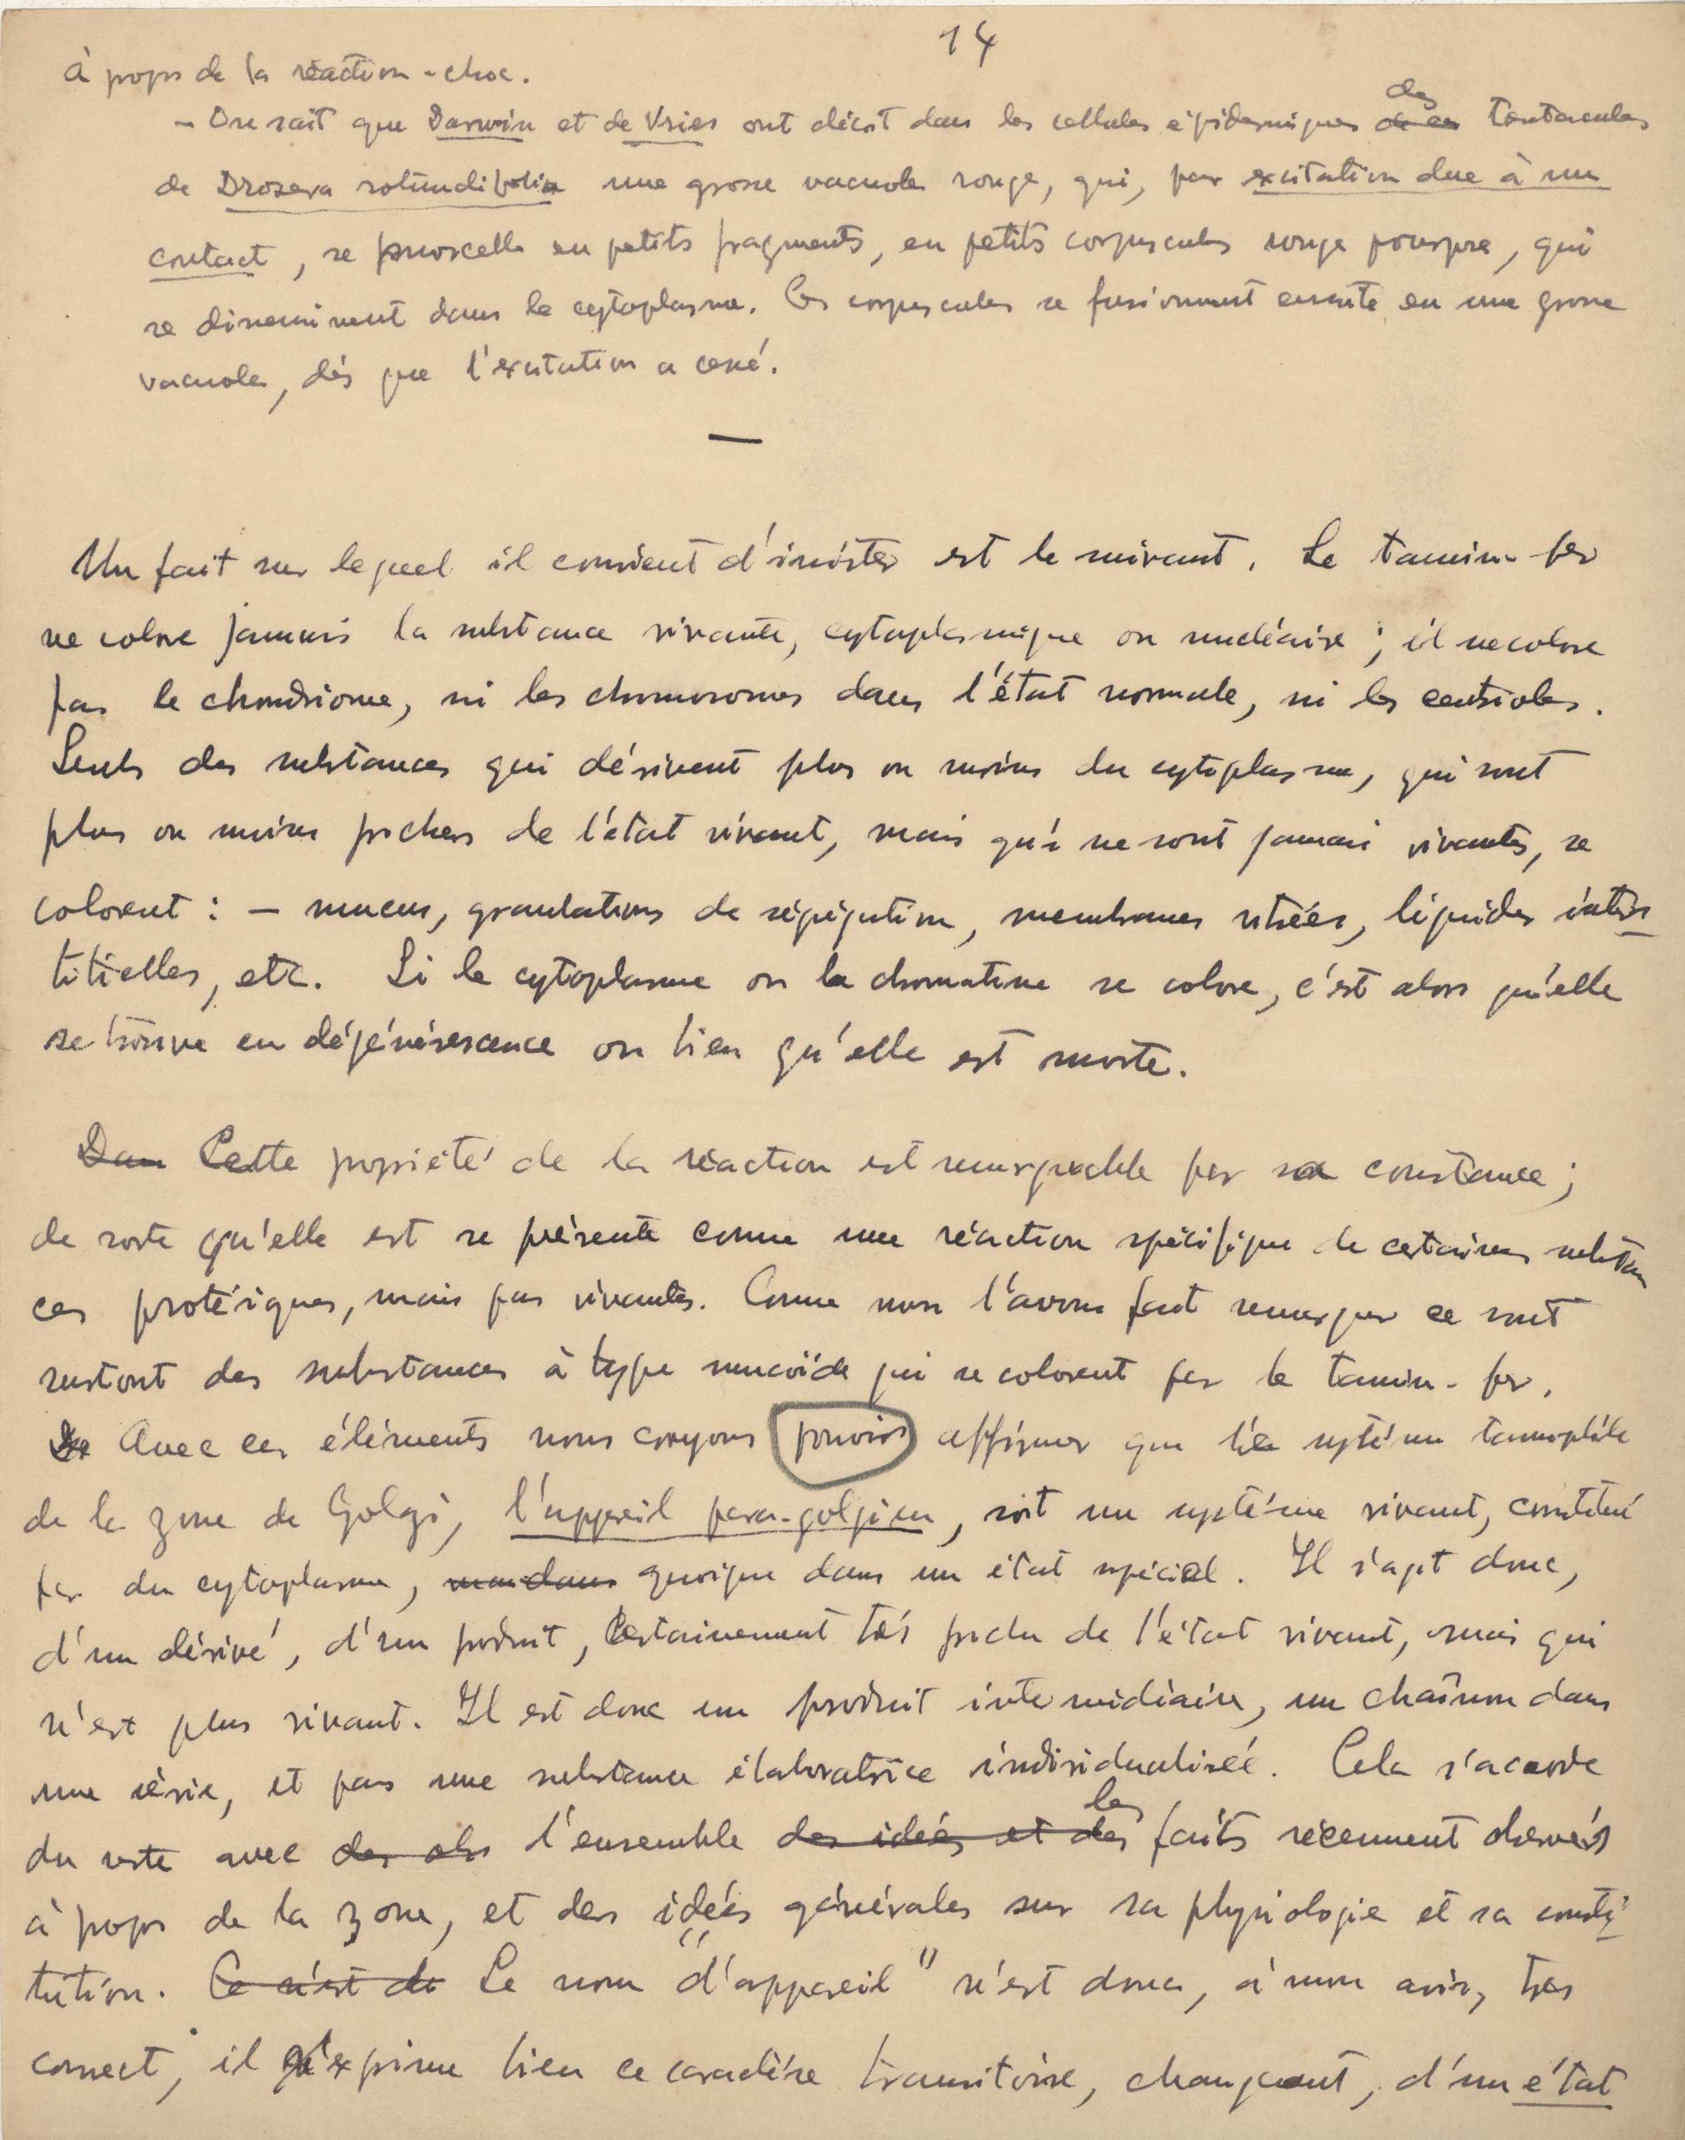 14
à propos de la réaction-choc.
— On sait que Darwin et de Vries ont décrit dans les cellules épidermiques de ces des tentacules
de Drosera rotundifolia une grosse vacuole rouge, qui, par excitation due à un
contact, se morcelle en petits fragments, en petits corpuscules rouge pourpre, qui
se disseminent dans le cytoplasme. Ces corpuscules se fusionnent ensuite en une grosse
vacuole, dès que l'excitation a cessé.
—
Un fait sur lequel il convient d'insister est le suivant. Le tannin-fer
ne colore jamais la substance vivante, cytoplasmique ou nucléaire ; il ne colore
pas le chondriome, ni les chromosomes dans l'état normale, ni les centrioles.
Seuls des substances qui dérivent plus ou moins du cytoplasme, qui sont
plus ou moins proches de l'état vivant, mais qui ne sont jamais vivantes, se
colorent : — mucus, granulations de ségrégation, membranes vitrées, liquides inters
titielles, etc. Si le cytoplasme ou la chromatine se colore, c'est alors qu'elle
se trouve en dégénérescence ou bien qu'elle est morte.
Dan Cette propriété de la réaction est remarquable par sa constance ;
de sorte qu'elle est se présente comme une réaction spécifique de certaines substan
ces protéiques, mais pas vivantes. Comme nous l'avons fait remarquer ce sont
surtout des substances à type mucoïde qui se colorent par le tannin-fer.
De Avec ces éléments nous croyons pouvoir affirmer que le système tannophile
de la zone de Golgi, l'appareil para-golgien, soit un système vivant, constitué
par du cytoplasme, mais dans quoique dans un état spécial. Il s'agit donc,
d'un dérivé, d'un produit, certainement très proche de l'état vivant, mais qui
n'est plus vivant. Il est donc un produit intermédiaire, un chaînon dans
une série, et pas une substance élaboratrice individualisée. Cela s'accorde
du reste avec des obs l'ensemble des idées et des les faits récemment observés
à propos de la zone, et des idées générales sur sa physiologie et sa consti
tution. Ce n'est de Le nom "d'appareil" n'est donc, à mon avis, tres
correct ; il exprime bien ce caractère transitoire, changeant, d'un état